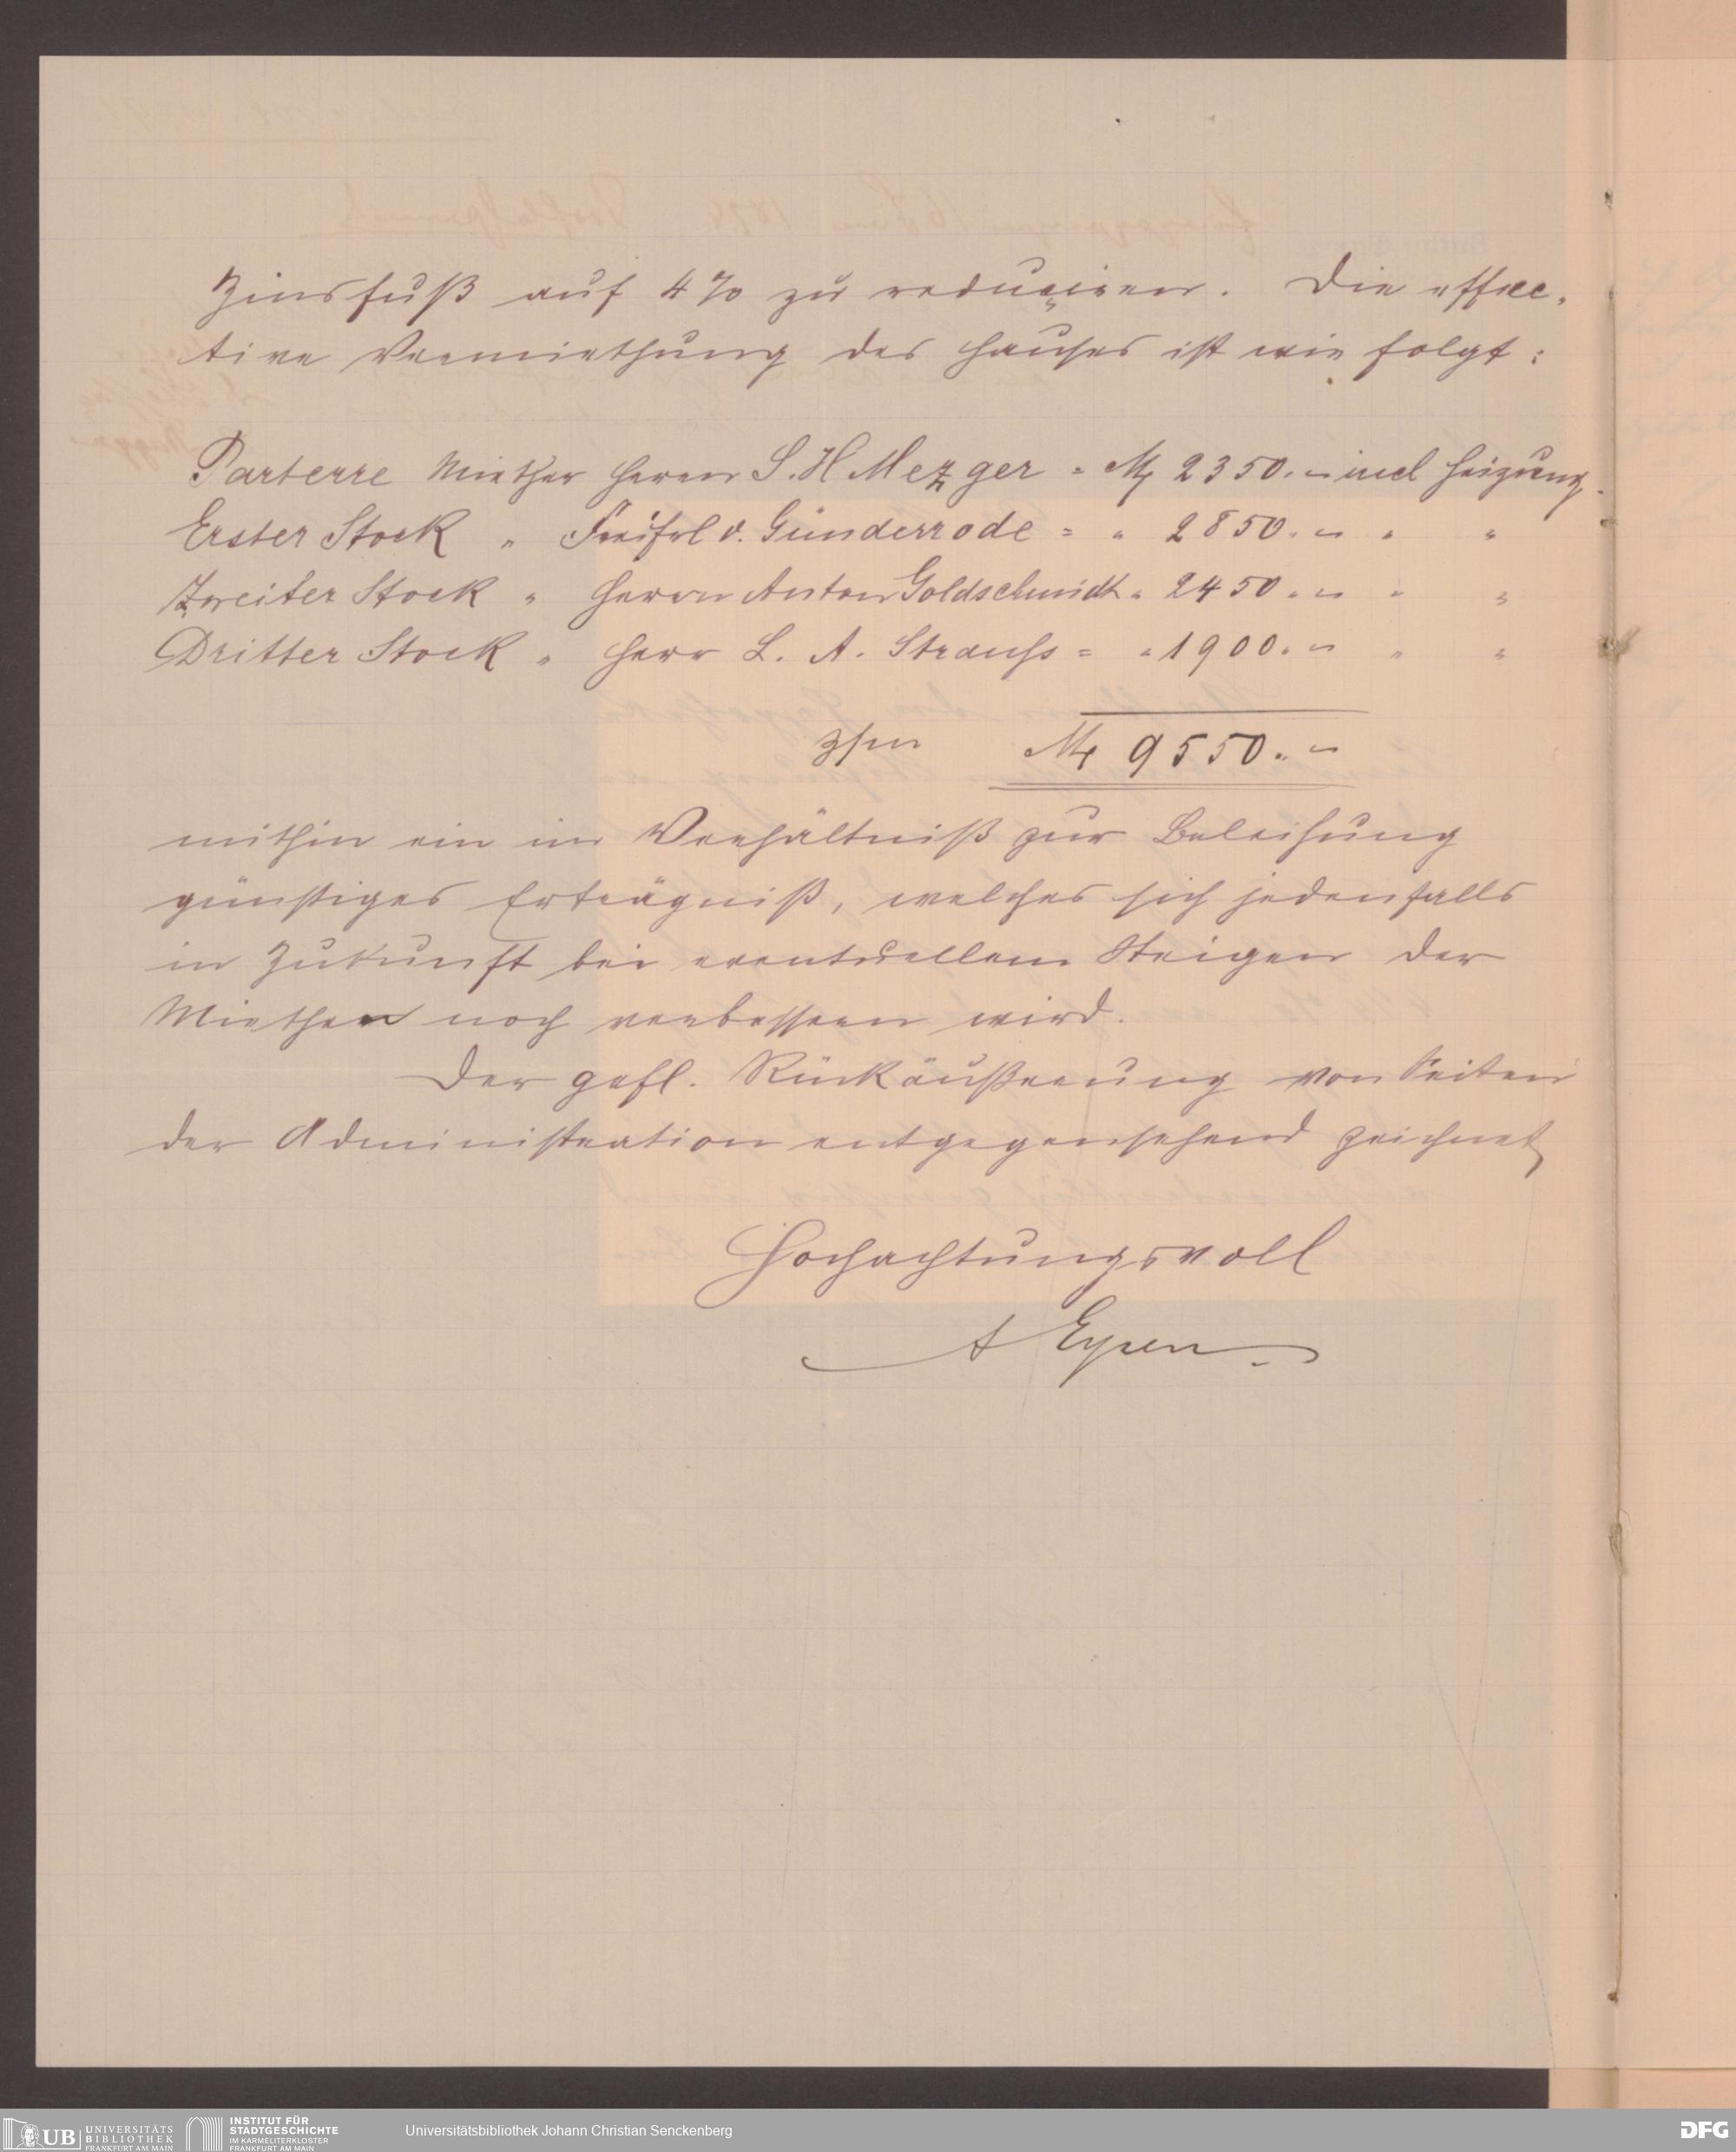 Zinsfuß auf 4% zu reduziren. Die effec-
tive Vermiethung des Hauses ist wie folgt:
Parterre Miether Herrn S. H Mezger = M 2350.- incl Heizung.
Erster Stock " Freifrl v. Günderrode = " 2850.- " "
Zweiter Stock " Herrn Anton Goldschmidt " 2450.- " "
Dritter Stock " Herr L. A. Strauss = " 1900.- " "
zsm M 9550.-
mithin ein im Verhältniß zur Beleihung
günstiges Erträgniß, welches sich jedenfalls
in Zukunft bei eventuellem Steigen der
Miethen noch verbessern wird.
Der gefl. Rückäußerung von Seiten
der Administration entgegensehend zeichnet
Hochachtungsvoll
UB UNIVERSITÄTS
BIBLIOTHEK
FRANKFURT AM MAIN
INSTITUT FÜR
STADTGESCHICHTE
IM KARMELITERKLOSTER
FRANKFURT AM MAIN
Universitätsbibliothek Johann Christian Senckenberg
DFG